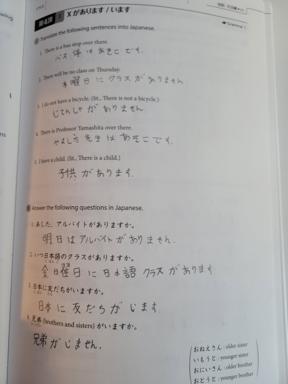 第4課 1 Xがあります／います
Translate the following sentences into Japanese.
1. There is a bus stop over there.
バス停はあそこです。
2. There will be no class on Thursday.
木曜日にクラスがありません
3. I do not have a bicycle. (lit., There is not a bicycle.)
じてんしゃがありません
4. There is Professor Yamashita over there.
やました先生はあそこです。
5. I have a child. (lit., There is a child.)
子供があります。
Answer the following questions in Japanese.
1. あした、アルバイトがありますか。
明日はアルバイトがありません。
2. いつ日本語のクラスがありますか。
金曜日に日本語クラスがあります
3. 日本に友だちがいますか。
日本に友だちがじます
4. 兄弟 (brothers and sisters) がいますか。
兄弟がじません。
おねえさん : older sister
いもうと : younger sister
おにいさん : older brother
おとうと : younger brother